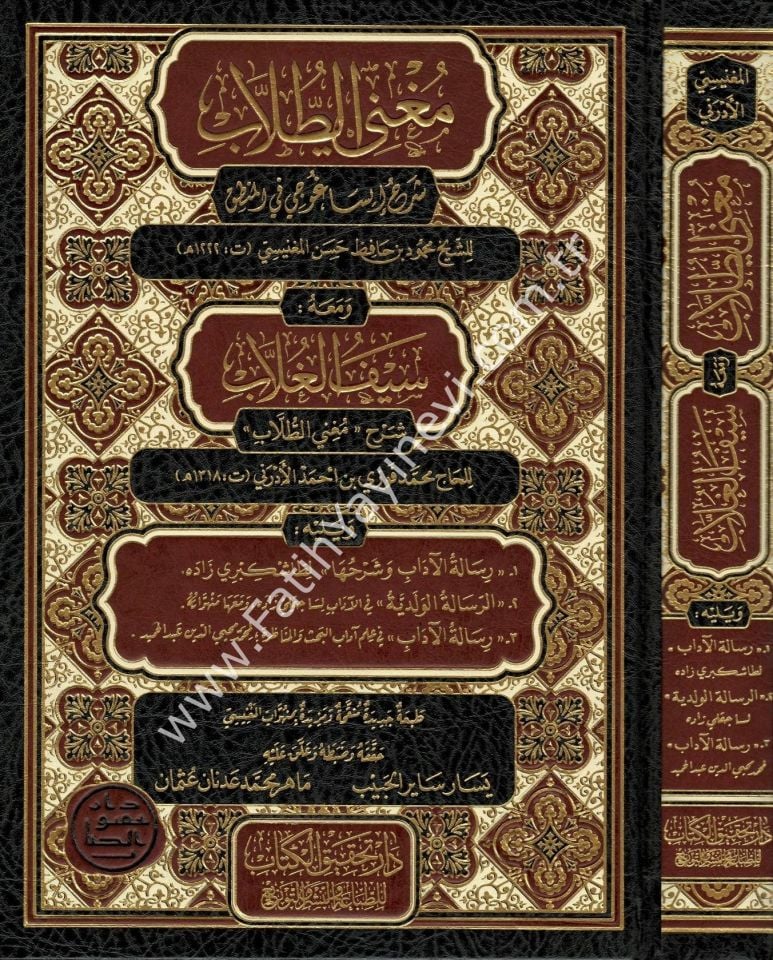 مُغْنِي الطُّلَّابِ
شَرْحُ إِيسَاغُوجِي فِي المَنْطِقِ
لِلشَّيْخِ مَحْمُود بن حَافِظ حَسَن المَغْنِيسِي (ت: ١٢٢٢هـ)
وَمَعَهُ :
سَيْفُ الغُلَّابِ
شَرْح «مُغْنِي الطُّلَّاب»
لِلحَاج مُحَمَّد فَوْزِي بن أَحْمَد الأَدِرْنَي (ت: ١٣١٨هـ)
وَيَلِيْهِ :
١. «رِسَالَةُ الآدَابِ وَشَرْحُهَا» لِطَاشْكُبْرِي زَادَه.
٢. «الرِّسَالَةُ الوَلَدِيَّةُ» فِي الآدَابِ لِسَاجَقْلِي زَادَه، وَمَعَهَا مِنْهُوَاتُهُ.
٣. «رِسَالَةُ الآدَابِ» فِي عِلْمِ آدَابِ البَحْثِ وَالمُنَاظَرَةِ؛ لِمُحَمَّد مُحْيِي الدِّين عَبْد الحَمِيد.
طَبْعَةٌ جَدِيدَةٌ مُنَقَّحَةٌ وَمَزِيدَةٌ بِمِنْهُوَاتِ المَغْنِيسِي
حَقَّقَهُ وَضَبَطَهُ وَعَلَّقَ عَلَيْهِ
يَسَار سَايِر الحَبِيب مَاهِر مُحَمَّد عَدْنَان عُثْمَان
دَار تَحْقِيق الكِتَاب
لِلطِّبَاعَةِ وَالنَّشْرِ وَالتَّوْزِيعِ
المَغْنِيسِي
الأَدِرْنَي
مُغْنِي الطُّلَّابِ
سَيْفُ الغُلَّابِ
وَيَلِيْهِ :
١. «رسالة الآداب»
لطاشكبري زاده
٢. «الرسالة الولدية»
لساجقلي زاده
٣. «رسالة الآداب»
محمد محيي الدين عبد الحميد
دَار تَحْقِيق الكِتَاب
لِلطِّبَاعَةِ وَالنَّشْرِ وَالتَّوْزِيعِ
www.Fatihyayinevi.com.tr